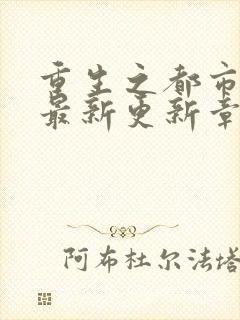 重生之都市
最新更新章
阿布杜尔法塔